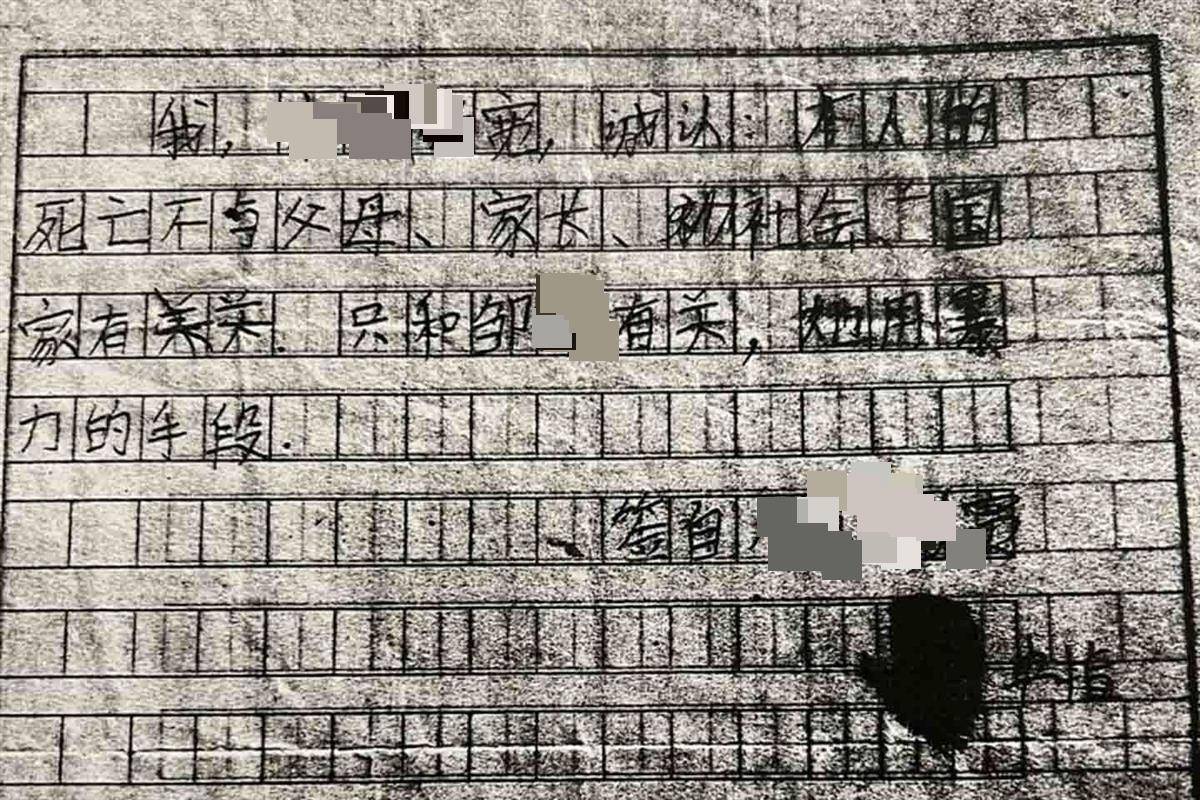 我,宽,诚认:本人的
死亡不与父母、家长、和社会、国
家有关关.只和邹有关,他用暴
力的手段.
签自